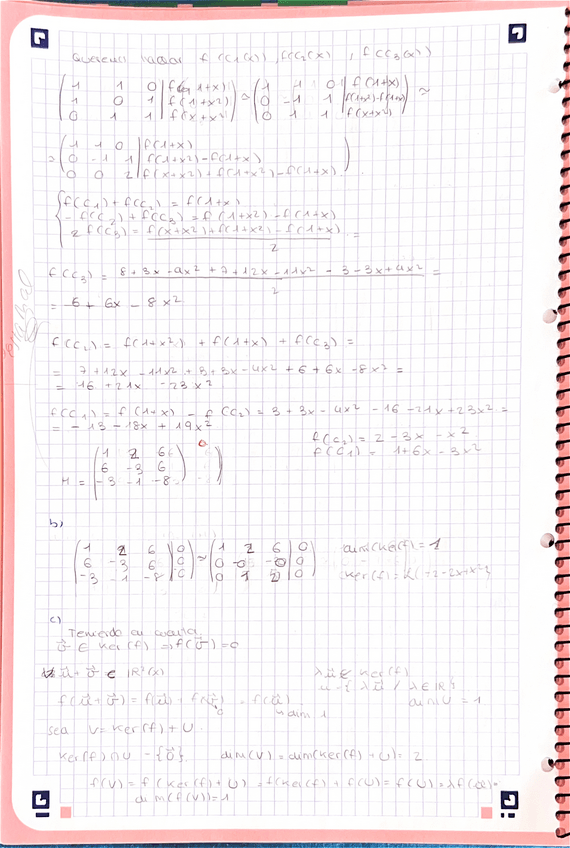 Queremos hallar f(C1(x)), f(C2(x)), f(C3(x))
( 1 1 0 | f(1+x) ) ≃ ( 1 1 0 | f(1+x) ) ≃
( 1 0 1 | f(1+x²) ) ( 0 -1 1 | f(1+x²)-f(1+x) )
( 0 1 1 | f(x+x²) ) ( 0 1 1 | f(x+x²) )
≃ ( 1 1 0 | f(1+x) )
( 0 -1 1 | f(1+x²)-f(1+x) )
( 0 0 2 | f(x+x²)+f(1+x²)-f(1+x) )
f(C1)+f(C2) = f(1+x)
-f(C2)+f(C3) = f(1+x²)-f(1+x)
2f(C3) = f(x+x²)+f(1+x²)-f(1+x) =
2
f(C3) = 8+3x-ax²+7+12x-11x²-3-3x+4x² =
2
= 6+6x-8x²
f(C2) = f(1+x²) + f(1+x) + f(C3) =
= 7+12x-11x²+3+3x-4x²+6+6x-8x² =
= 16+21x-23x²
f(C1) = f(1+x) - f(C2) = 3+3x-4x²-16-21x+23x² =
= -13-18x+19x²
f(C2) = 2-3x-x²
f(C1) = 1+6x-3x²
( 1 2 6 )
( 6 -3 6 )
M = ( -3 -1 -8 )
b)
( 1 2 6 | 0 ) ≃ ( 1 2 6 | 0 ) dim(ker(f) = 1
( 6 -3 6 | 0 )
( -3 -1 -8 | 0 ) ker(f) = L{-2-2x+x²}
c)
Teniendo en cuenta
v ∈ ker(f) ⇒ f(v) = 0
u + v ∈ IR²(x) λu ∉ ker(f)
f(u+v) = f(u) + f(v) = f(u) u = {λu / λ ∈ IR}
dim 1 dim U = 1
sea V = ker(f) + U.
ker(f) ∩ U = {0}. dim(V) = dim(ker(f) + U) = 2
f(V) = f(ker(f)+U) = f(ker(f) + f(U) = f(U) = λf(u) =
dim(f(V)) = 1